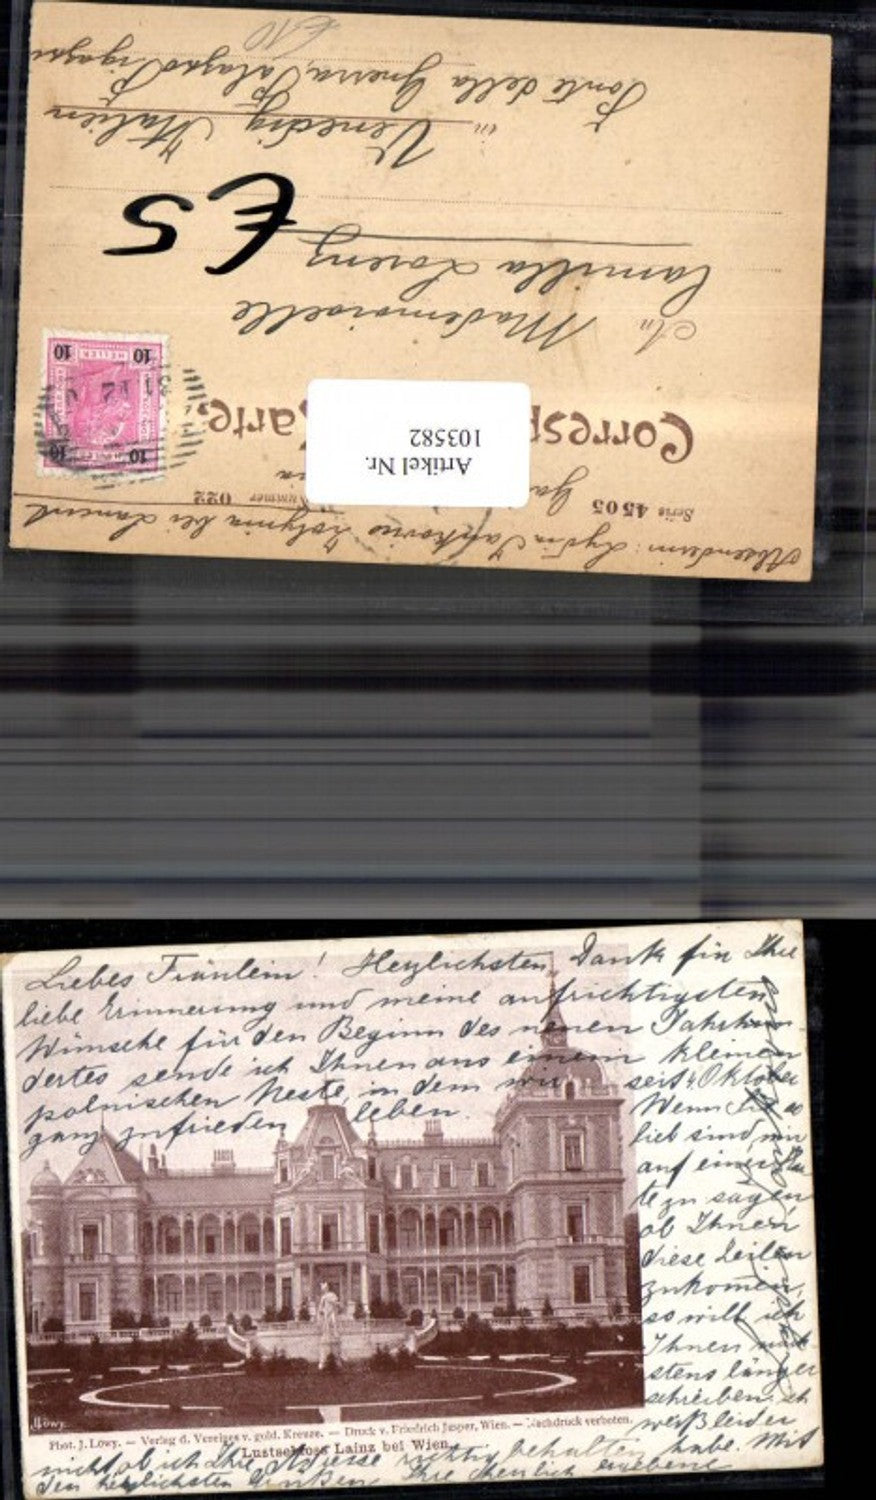 Absenderin: Lydia Jankovics Zolynia bei Lancut
Serie 4503 Nummer 022
Corresp arte.
Artikel Nr.
103582
An Mademoiselle
Camilla Lorenz
€5
in Venedig Italien
Ponte della Guerra, Palazzo
€10
10 HELLER 10
10 10
Liebes Fräulein! Herzlichsten Dank für Ihre
liebe Erinnerung und meine aufrichtigsten
Wünsche für den Beginn des neuen Jahrhun-
dertes sende ich Ihnen aus einem kleinen
polnischen Neste, in dem wir seit 4 Oktober
ganz zufrieden leben.
Wenn Sie so
lieb sind, mir
auf einer Kar
te zu sagen
ob Ihnen
diese Zeilen
zukommen,
so will ich
Ihnen näch
stens länger
schreiben, ich
weiß leider
nicht ob ich Ihre Adresse richtig behalten habe. Mit
den herzlichsten Grüßen Ihre ergebene
Löwy
Phot. J. Löwy. — Verlag d. Vereines v. gold. Kreuze. — Druck v. Friedrich Jasper, Wien. — Nachdruck verboten.
Lustschloss Lainz bei Wien.